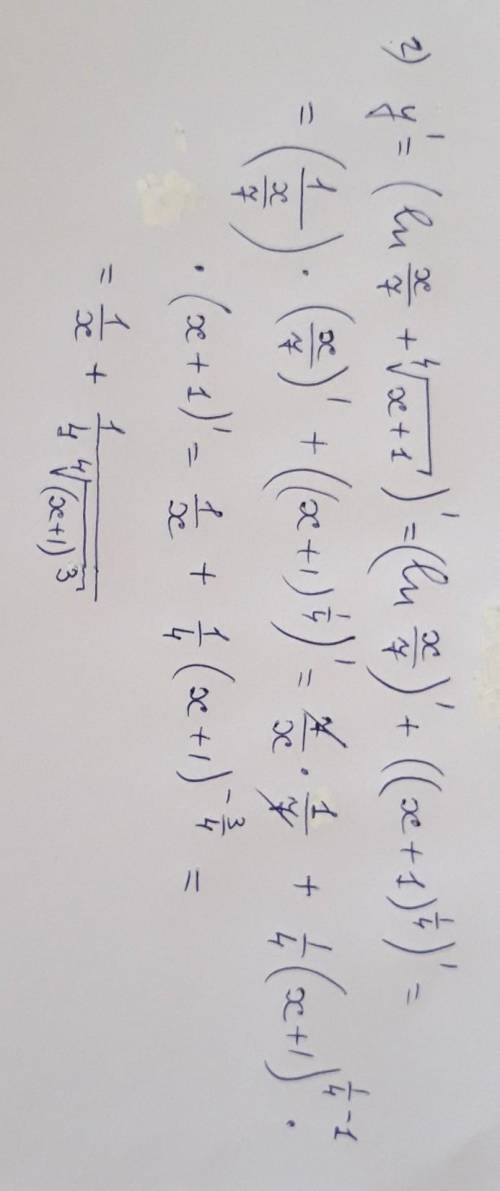 2) y' = (ln x/7 + ∜(x+1))' = (ln x/7)' + ((x+1)^(1/4))' =
= (1/(x/7)) · (x/7)' + ((x+1)^(1/4))' = 7/x · 1/7 + 1/4 (x+1)^(1/4 - 1) ·
· (x+1)' = 1/x + 1/4 (x+1)^(-3/4) =
= 1/x + 1/(4 ∜((x+1)^3))